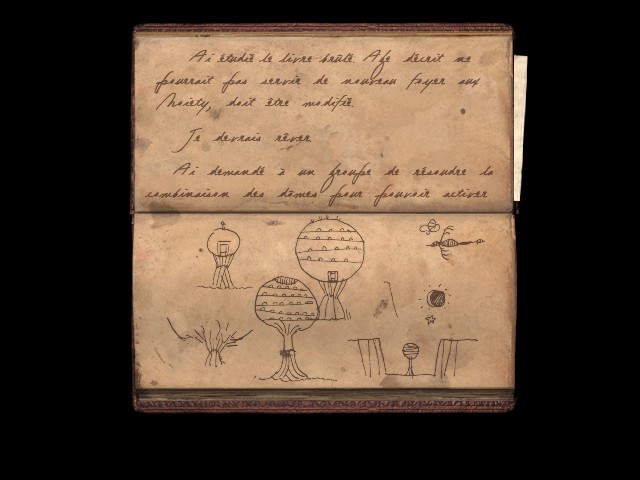 Ai étudié le livre brûlé. Age décrit ne
pourrait pas servir de nouveau foyer aux
Moiety, doit être modifié.
Je devrais rêver.
Ai demandé à un groupe de résoudre la
combinaison des dômes pour pouvoir activer